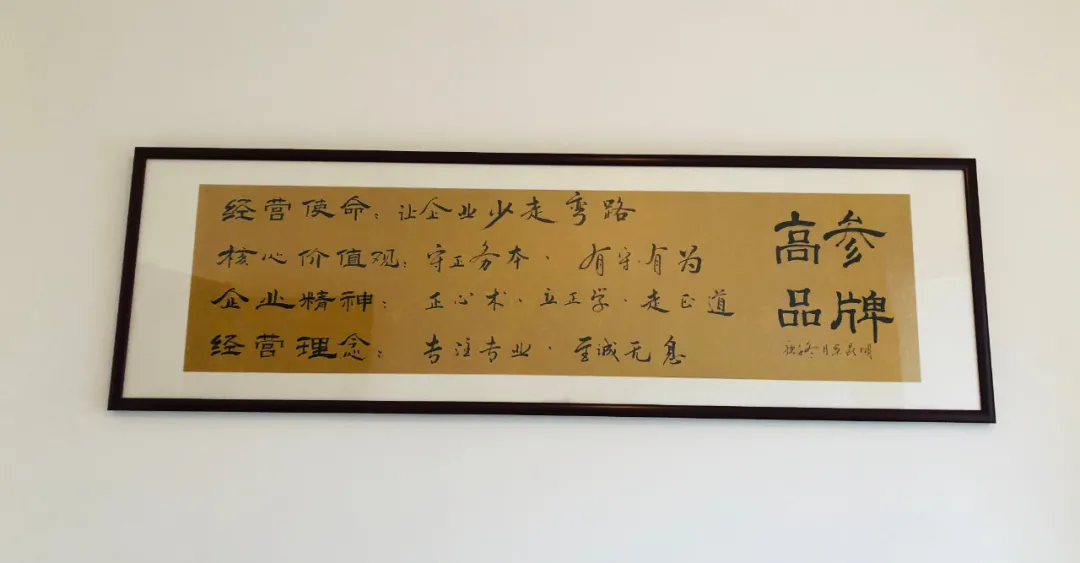 经营使命：让企业少走弯路
核心价值观：守正务本、有守有为
企业精神：正心术、立正学、走正道
经营理念：专注专业、至诚无息
高参
品牌
冬月